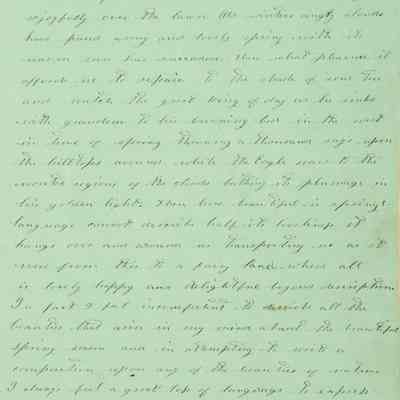 joyfully over the lawn the winters angry clouds
have passed away and lovely spring with its
warm sun has succeeded. Then what pleasure it
affords us to repair to the shade of some tree
and watch the great king of day as he sinks
with grandeur to his burning bed in the west
in time of spring throwing a thousand rays upon
the hilltops around while the Eagle soars to the
regions of the clouds bathing its plumage in
his golden light. Then how beautiful is spring
language cannot describe half its loveliness it
hangs over and around us transporting us as it
were from this to a fairy land where all
is lovely happy and delightful beyond description
In fact I feel incompetent to describe all the
beauties that arise in my mind about the beautiful
spring season and in attempting to write a
composition upon any of the beauties of nature
I always feel a great loss of language to express